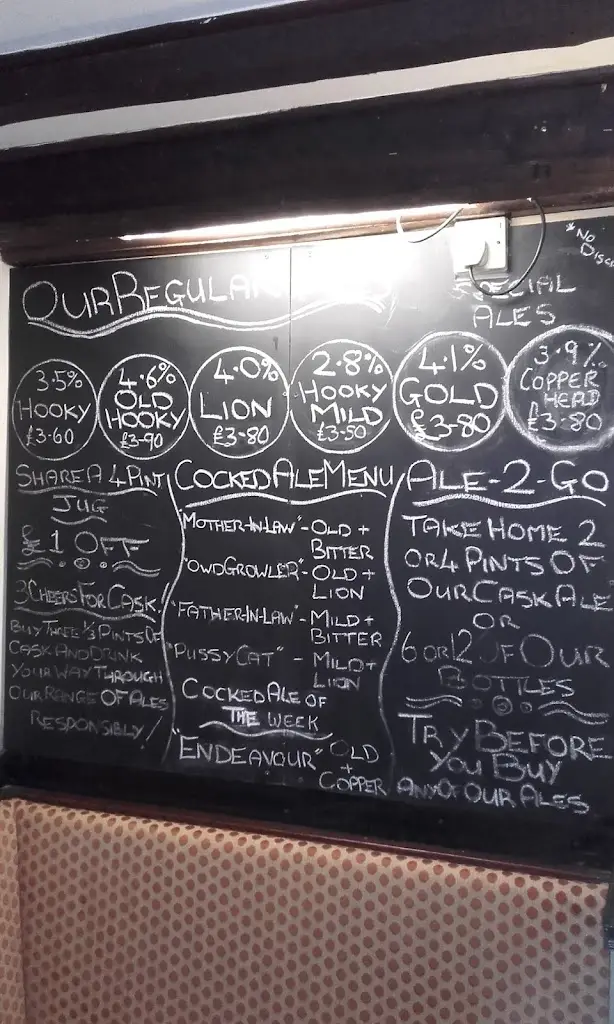 OUR REGULAR
SPECIAL
ALES
*NO
3.5%
HOOKY
£3-60
4.6%
OLD
HOOKY
£3-90
4.0%
LION
£3-80
2.8%
HOOKY
MILD
£3-50
4.1%
GOLD
£3-80
3.9%
COPPER
HEAD
£3-80
SHARE A 4 PINT
JUG
£1 OFF
3 CHEERS FOR CASK!
BUY THREE 1/3 PINTS OF
CASK AND DRINK
YOUR WAY THROUGH
OUR RANGE OF ALES
RESPONSIBLY!
COCKED ALE MENU
"MOTHER-IN-LAW" - OLD +
BITTER
"OWD GROWLER" - OLD +
LION
"FATHER-IN-LAW" - MILD +
BITTER
"PUSSY CAT" - MILD +
LION
COCKED ALE OF
THE WEEK
"ENDEAVOUR" OLD
+
COPPER
ALE-2-GO
TAKE HOME 2
OR 4 PINTS OF
OUR CASK ALE
OR
6 OR 12 OF OUR
BOTTLES
TRY BEFORE
YOU BUY
ANY OF OUR ALES